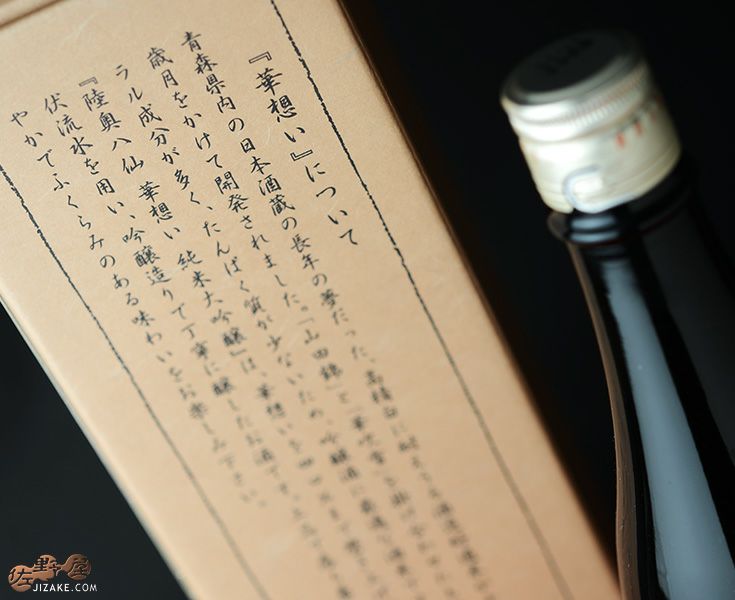 『華想い』について
青森県内の日本酒蔵の長年の夢だった、高精白に耐えうる酒造好適米
歳月をかけて開発されました。「山田錦」と「華吹雪」を掛け合わせ
ラル成分が多く、たんぱく質が少ないため、吟醸酒に最適な酒米
『陸奥八仙 華想い 純米大吟醸』は、華想いを
伏流水を用い、吟醸造りで丁寧に醸したお酒です。
やかでふくらみのある味わいをお楽しみ下さい。
佐野屋
JIZAKE.COM